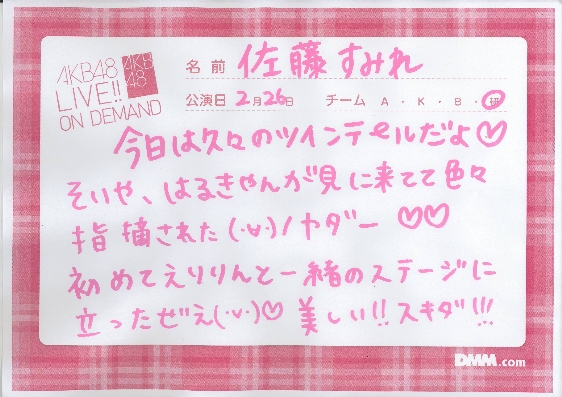 AKB48
LIVE!!
ON DEMAND
AKB
48
名前 佐藤すみれ
公演日 2月26日 チーム A・K・B・研
今日は久々のツインテールだよ♡
そいや、はるきゃんが見に来てて色々
指摘された(・v・)/ヤダー ♡♡
初めてえりりんと一緒のステージに
立ったぜえ(・v・)♡ 美しい!!スキダ!!!
DMM.com